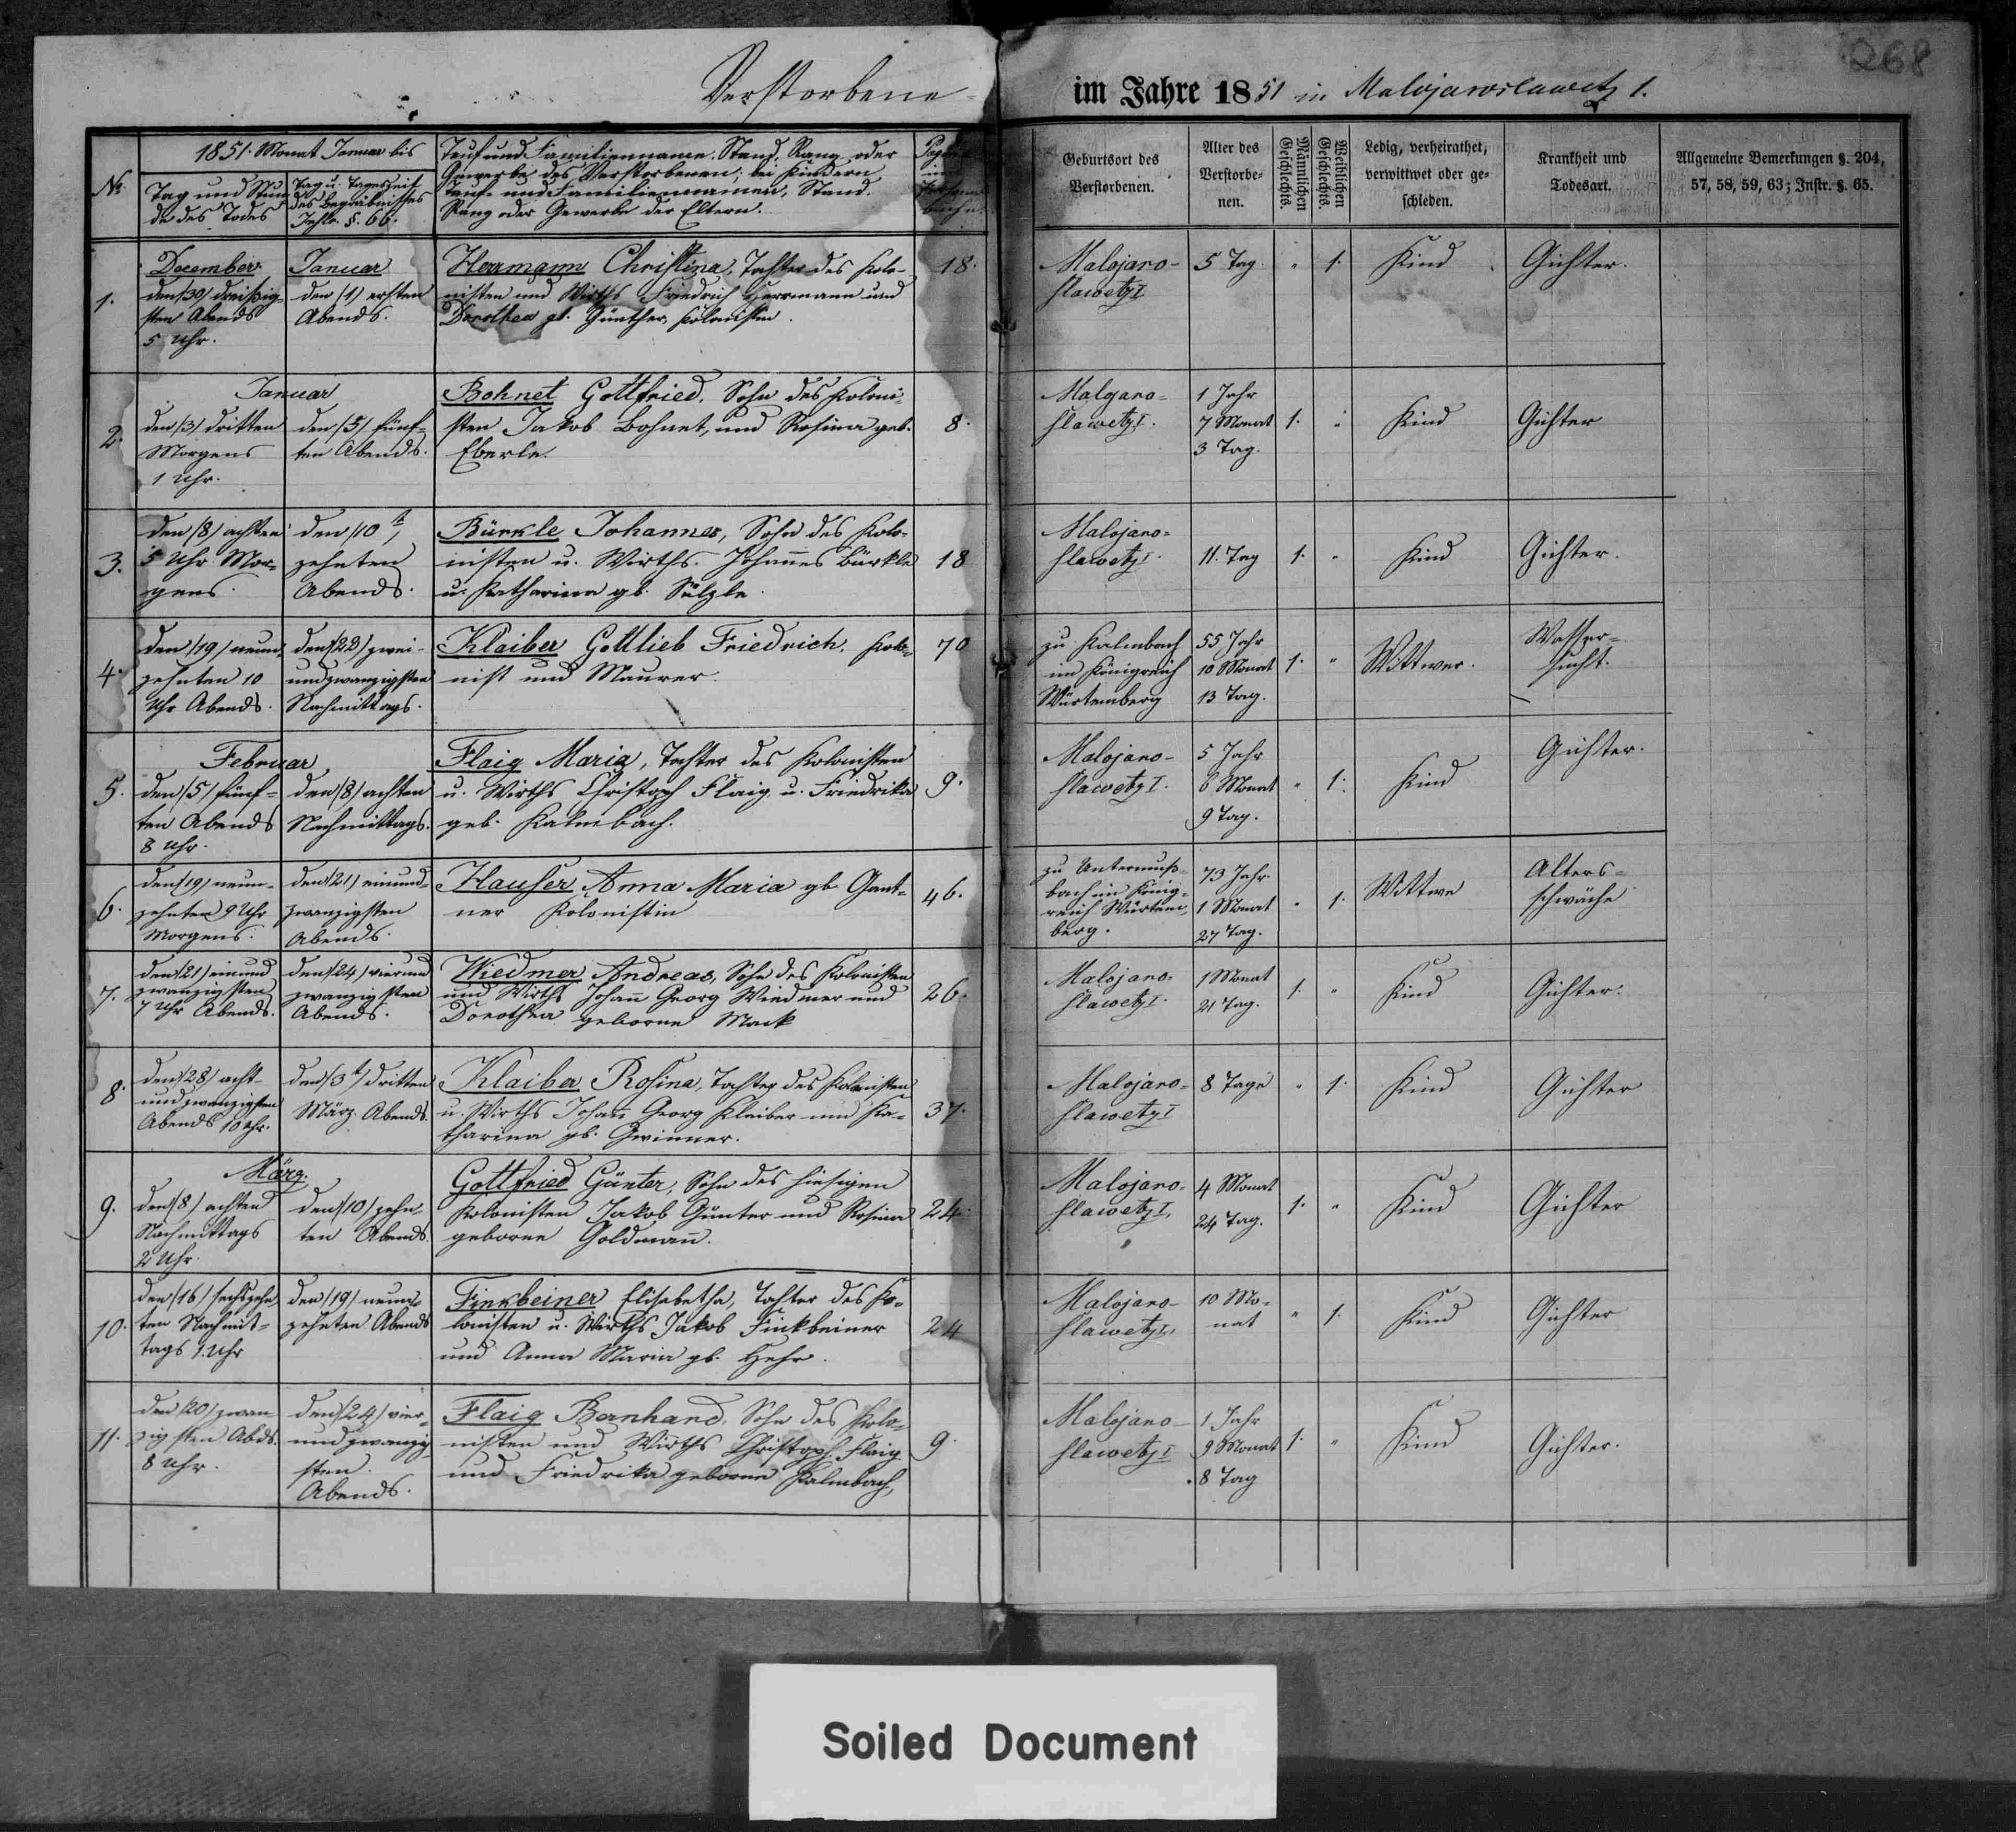 268
Verstorbene im Jahre 1851 in Malojaroslawetz 1.
No.
1851. Monat Januar bis
Tag und Stun
de des Todes
Tag u. Tageszeit
des Begräbnisses
§. 66.
Tauf und Familienname, Stand, Rang oder
Gewerbe des Verstorbenen; bei Kindern
Tauf- und Familiennamen, Stand
Rang oder Gewerbe der Eltern.
Geburtsort des
Verstorbenen.
Alter des
Verstorbe-
nen.
Männlichen
Geschlechts.
Weiblichen
Geschlechts.
Ledig, verheirathet,
verwittwet oder ge-
schieden.
Krankheit und
Todesart.
Allgemeine Bemerkungen §. 204,
57, 58, 59, 63; Instr. §. 65.
1.
December
den /30/ dreißig-
sten Abends
5 Uhr.
Januar
den /1/ ersten
Abends.
Herrmann Christina, Tochter des Kolo-
nisten und Wirths Friedrich Herrmann und
Dorothea gb. Günther, Kolonistin.
18.
Malojaro-
slawetz I
5 Tag
"
1.
Kind
Gichter.
2.
Januar
den /3/ dritten
Morgens
1 Uhr.
den /5/ fünf-
ten Abends.
Bohnet Gottfried, Sohn des Koloni-
sten Jakob Bohnet, und Rosina geb.
Eberle.
8.
Malojaro-
slawetz I.
1 Jahr
7 Monat
3 Tag.
1.
"
Kind
Gichter
3.
den /8/ achten
5 Uhr Mor-
gens.
den /10t/
zehnten
Abends.
Bürkle Johannes, Sohn des Kolo-
nisten u. Wirths. Johannes Bürkle
u. Katharina gb. Sülzle.
18
Malojaro-
slawetz I.
11. Tag
1.
"
Kind
Gichter.
4.
den /19/ neun-
zehnten 10
Uhr Abends.
den /22/ zwei-
undzwanzigsten
Nachmittags.
Klaiber Gottlieb Friedrich, Kolo-
nist und Maurer.
70
zu Kalmbach
im Königreich
Würtemberg
55 Jahr
10 Monat
13 Tag.
1.
"
Wittwer.
Wasser-
sucht.
5.
Februar
den /5/ fünf-
ten Abends
8 Uhr.
den /8/ achten
Nachmittags.
Flaig Maria, Tochter des Kolonisten
u. Wirths Christoph Flaig u. Friedrika
geb. Kalmbach.
9.
Malojaro-
slawetz I.
5 Jahr
6 Monat
9 Tag.
"
1.
Kind
Gichter.
6.
den /19/ neun-
zehnten 9 Uhr
Morgens.
den /21/ einund-
zwanzigsten
Abends.
Hauser Anna Maria gb. Gant-
ner Kolonistin
46.
zu Untermuß-
bach im König-
reich Würtem-
berg.
73 Jahr.
1 Monat
27 Tag.
"
1.
Wittwe
Alters-
schwäche
7.
den /21/ einund
zwanzigsten
7 Uhr Abends.
den /24/ vierund
zwanzigsten
Abends.
Wiedmer Andreas, Sohn des Kolonisten
und Wirths Johann Georg Wiedmer und
Dorothea geborne Mack
26.
Malojaro-
slawetz I.
1 Monat
21 Tag.
1.
"
Kind
Gichter.
8.
den /28/ acht-
undzwanzigsten
Abends 10 Uhr.
den /3t/ dritten
März. Abends.
Klaiber Rosina, Tochter des Kolonisten
u. Wirths Johann Georg Klaiber und Ka-
tharina gb. Gwinner.
37.
Malojaro-
slawetz I
8 Tage
"
1.
Kind
Gichter
9.
März.
den /8/ achten
Nachmittags
2 Uhr.
den /10/ zehn-
ten Abends.
Gottfried Günter, Sohn des hiesigen
Kolonisten Jakob Günter und Rosina
geborne Goldmann.
24.
Malojaro-
slawetz I.
4 Monat
24 Tag.
1.
"
Kind
Gichter
10.
den /16/ sechszehn-
ten Nachmit-
tags 1. Uhr
den /19/ neun-
zehnten Abends
Finkbeiner Elisabetha, Tochter des Ko-
lonisten u. Wirths Jakob Finkbeiner
und Anna Maria gb. Hehr.
24
Malojaro-
slawetz I.
10 Mo-
nat
"
1.
Kind
Gichter
11.
den /20/ zwan-
zigsten Abds.
8 Uhr.
den /24/ vier-
undzwanzig-
sten
Abends.
Flaig Bernhard, Sohn des Kolo-
nisten und Wirths Christoph Flaig
und Friedrika geborne Kalmbach,
9.
Malojaro-
slawetz I
1 Jahr
9 Monat
8 Tag
1.
"
Kind
Gichter.
Soiled Document